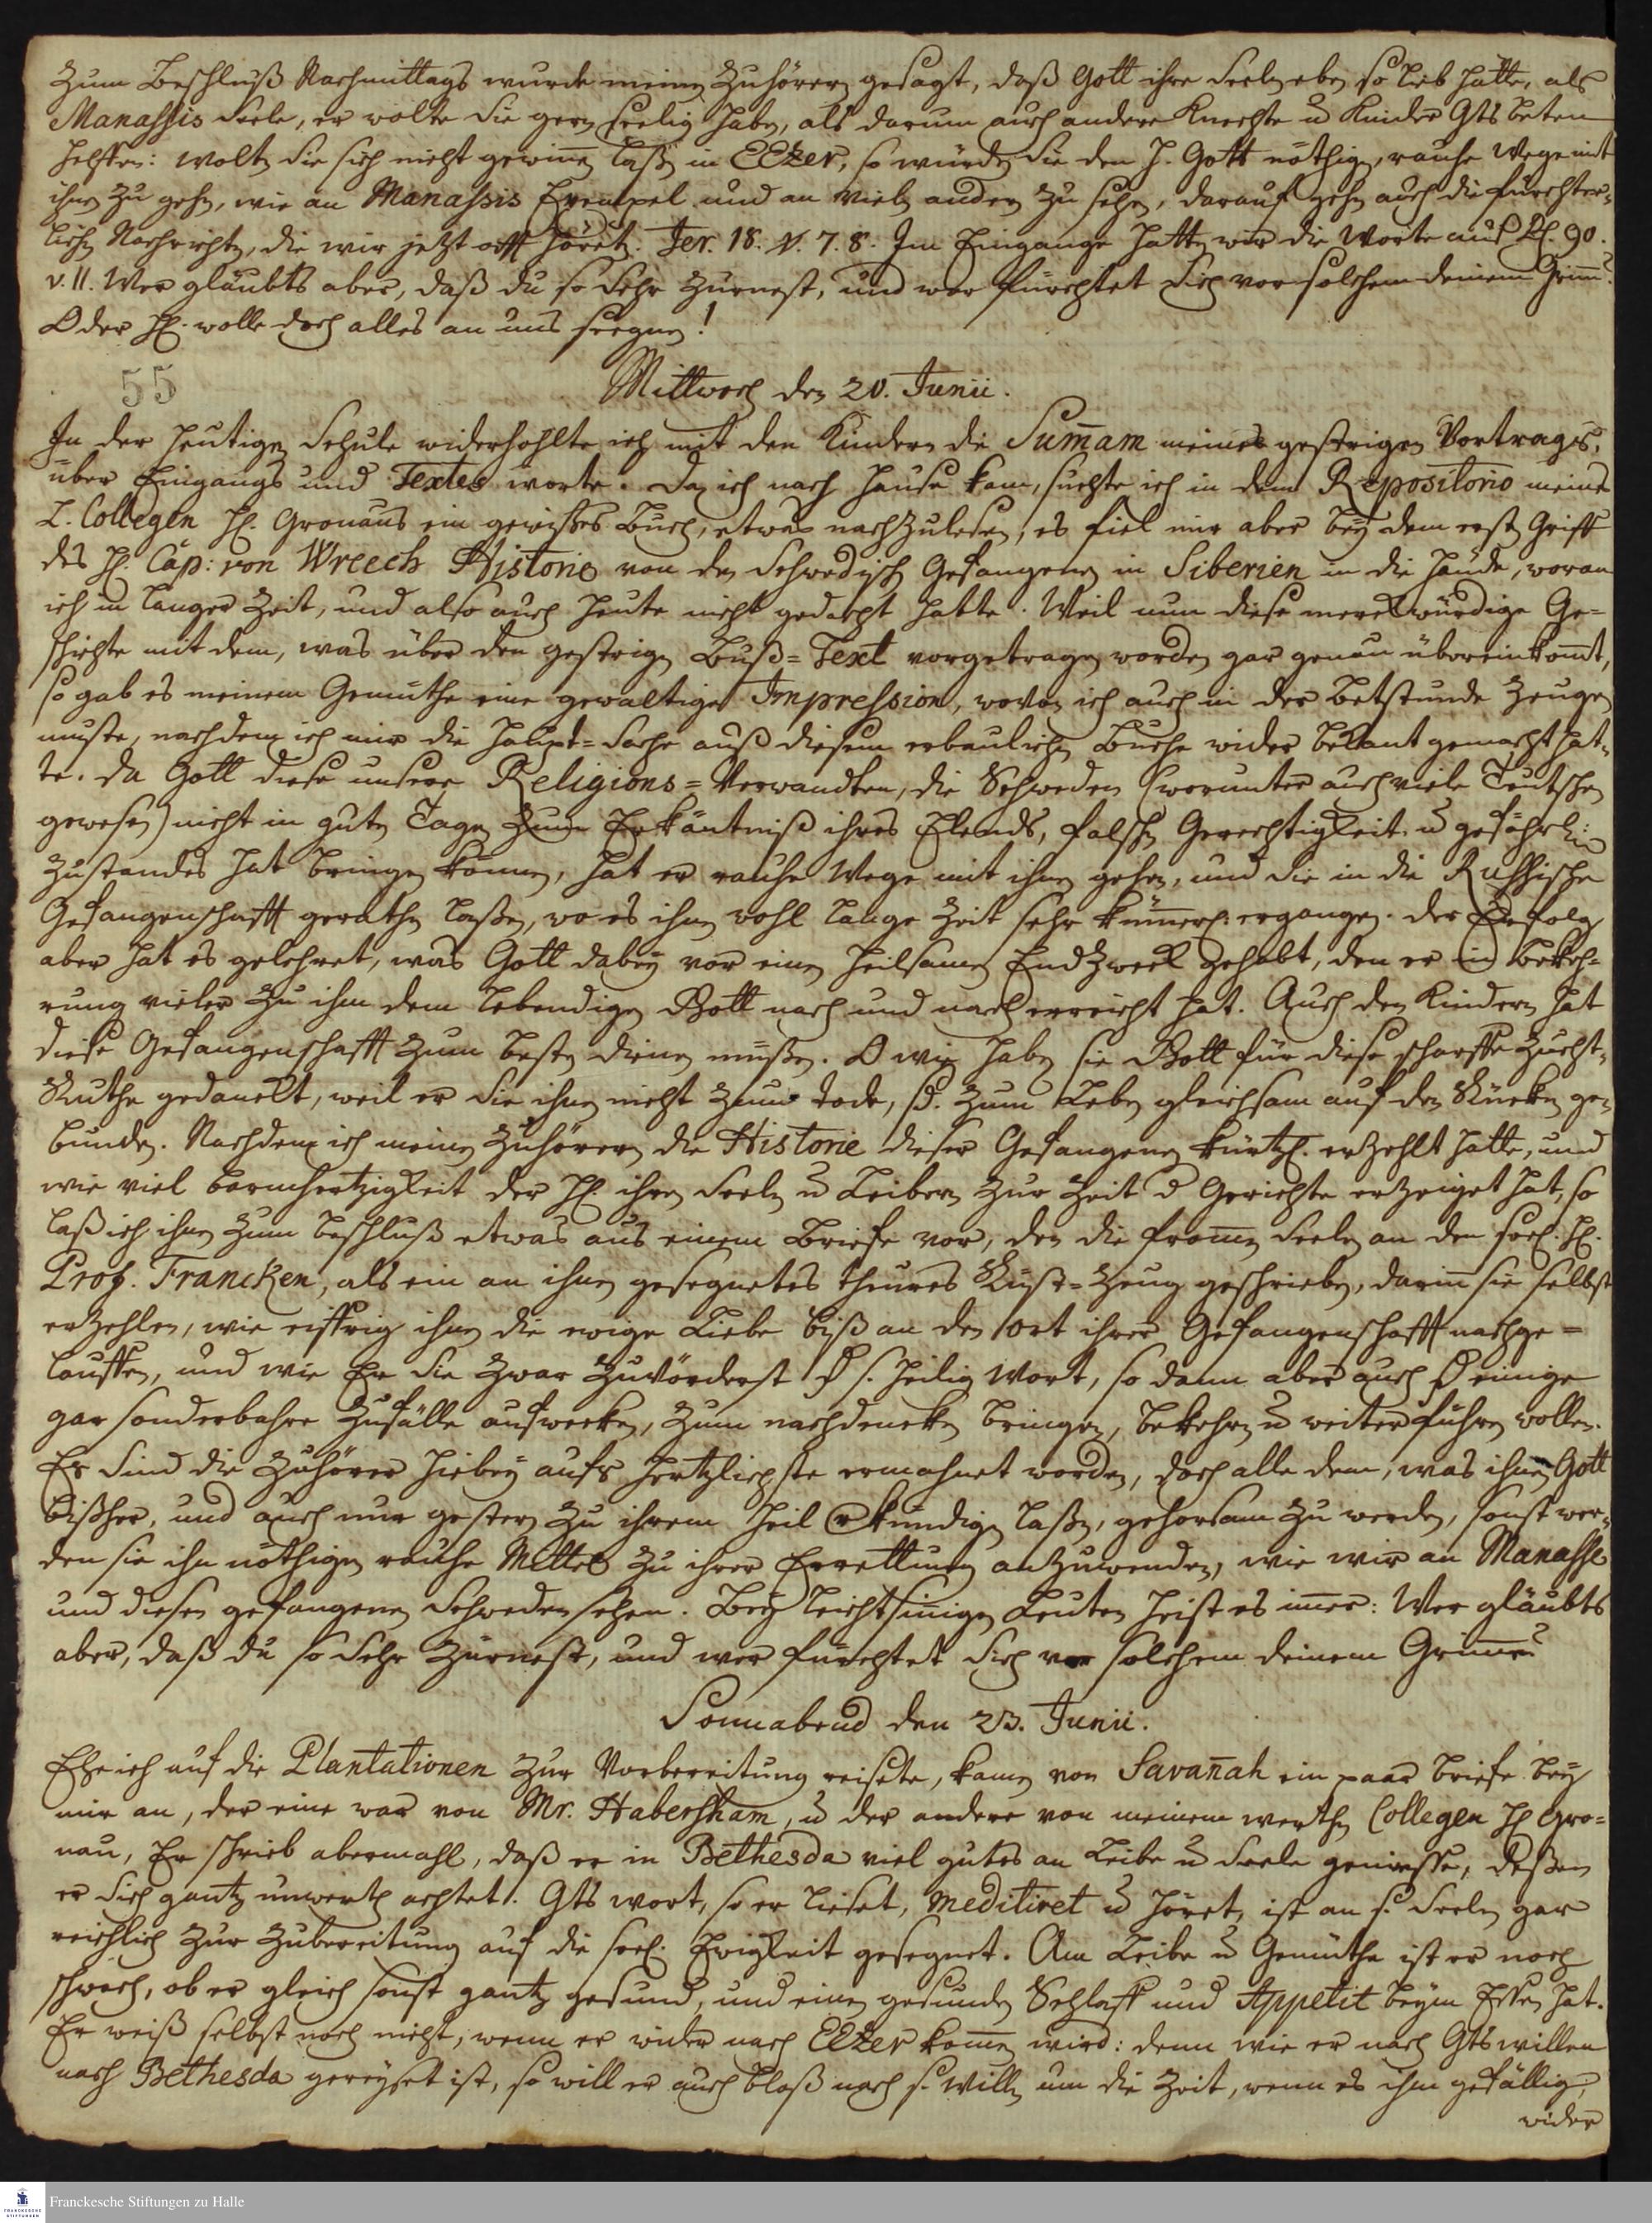 Zum Beschluß Nachmittags wurde meinen Zuhörern gesagt, daß Gott ihre Seelen eben so lieb hätte, als
Manassis Seele, er wolte sie gern seelig haben, als darum auch andere Knechte u. Kinder Gts beten
helffen: wolten sie sich nicht gewinnen laßen in EEzer, so würden sie den H. Gott nöthigen, rauhe Wege mit
ihnen zu gehen, wie an Manassis Exempel und an vielen andern zu sehen, darauf gehen auch die fürchter-
lichen Nachrichten, die wir jetzt offt höreten. Jer. 18. v. 7. 8. Im Eingange hatten wir die Worte aus Ps. 90.
v. 11. Wer gläubts aber, daß du so sehr zürnest, und wer fürchtet sich vor solchem deinem Grim̄?
O der H. wolle doch alles an uns seegnen!
55
Mittwoch den 20. Junii.
In der heutigen Schule widerhohlte ich mit den Kindern die Sum̄am meines gestrigen Vortrages,
über Eingangs und Textes worte. Da ich nach Hause kam, suchte ich in dem Repositorio meines
L. Collegen H. Gronaus ein gewißes Buch, etwas nachzulesen, es fiel mir aber bey dem ersten Griff
des H. Cap: von Wreech Historie von den Schwedischen Gefangenen in Siberien in die Hände, woran
ich in langer Zeit, und also auch heute nicht gedacht hatte. Weil nun diese merckwürdige Ge=
schichte mit dem, was über den gestrigen Buß=Text vorgetragen worden gar genau übereinkom̄t,
so gab es meinem Gemüthe eine gewaltige Impression, wovon ich auch in der Betstunde zeugen
muste, nachdem ich mir die Haupt=Sache auß diesem erbaulichen Buche wider bekant gemacht hat-
te. Da Gott diese unsere Religions=Verwandten, die Schweden (worunter auch viele Teutschen
gewesen) nicht in guten Tagen zum Erkäntniß ihres Elends, falschen Gerechtigkeit u. gefährl:
Zustandes hat bringen können, hat er rauhe Wege mit ihnen gehen, und sie in die Russische
Gefangenschafft gerathen laßen, wo es ihnen wohl lange Zeit sehr küm̄erl: ergangen. Der Erfolg
aber hat es gelehret, was Gott dabey vor einen heilsamen Endzweck gehabt, den er in Bekeh=
rung vieler zu ihm dem lebendigen Gott nach und nach erreicht hat. Auch den Kindern hat
diese Gefangenschafft zum besten dienen müßen. O wie haben sie Gott für diese scharffe Zucht-
Ruthe gedanckt, weil er sie ihnen nicht zum Tode, sd. zum Leben gleichsam auf den Rücken ge-
bunden. Nachdem ich meinen Zuhörern die Historie dieser Gefangenen kürtzl. erzehlt hatte, und
wie viel Barmhertzigkeit der H. ihren Seelen u. Leibern zur Zeit d Gerichte erzeiget hat, so
laß ich ihnen zum Beschluß etwas aus einem Briefe vor, den die from̄en Seelen an den seel. H.
Prof. Francken, als ein an ihnen gesegnetes theures Rüst=Zeug geschrieben, darin̄ sie selbst
erzehlen, wie eiffrig ihnen die ewige Liebe biß an den Ort ihrer Gefangenschafft nachge=
lauffen, und wie Er sie zwar zuvörderst d s. heilig Wort, so dann aber auch d einige
gar sonderbahre Zufälle aufwecken, zum nachdencken bringen, bekehren u. weiter führen wollen.
Es sind die Zuhörer hiebey aufs hertzlichste ermahnet worden, doch alle dem, was ihnen Gott
bißher, und auch nur gestern zu ihrem Heil verkündigen laßen, gehorsam zu werden, sonst wer-
den sie ihn nöthigen rauhe Mittel zu ihrer Errettung anzuwenden, wie wir an Manasse
und diesen gefangenen Schweden sehen. Bey leichtsin̄igen Leuten heist es im̄er: Wer gläubts
aber, daß du so sehr zürnest, und wer fürchtet sich vor solchem deinem Grim̄e?
Sonnabend den 23. Junii.
Ehe ich auf die Plantationen zur Vorbereitung reisete, kamen von Savan̄ah ein paar Briefe bey
mir an, der eine war von Mr. Habersham, u. der andere von meinem werthen Collegen H Gro=
nau, Er schrieb abermahl, daß er in Bethesda viel gutes an Leibe u. Seele geniesse, deßen
er sich gantz unwerth achtet. Gts wort, so er lieset, meditiret u. höret, ist an s. Seelen gar
reichlich zur Zubereitung auf die seel. Ewigkeit gesegnet. Am Leibe u. Gemüthe ist er noch
schwach, ob er gleich sonst gantz gesund, und einen gesunden Schlaff und Appetit beym Essen hat.
Er weiß selbst noch nicht, wenn er wider nach EEzer kom̄en wird: denn wie er nach Gts willen
nach Bethesda gereyset ist, so will er auch bloß nach s. Willen um die Zeit, wenn es ihm gefällig,
wider
Franckesche Stiftungen zu Halle
FRANCKESCHE
STIFTUNGEN